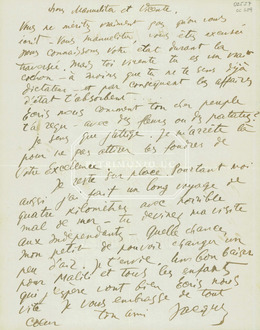 Bons Manuelita et Vicente.
Vous ne méritez vraiment pas qu'on vous
écrit - Vous Manuelita, vous êtes excusée
pour connaissons votre état durant la
traversée. Mais toi Vicente tu es un
cochon - à moins que tu ne sois déjà
dictateur - et par conséquent les affaires
d'état t'absorbent.
Ecris nous comment ton cher peuple
t'a reçu avec des fleurs ou des patates?
Je sens que je m'arrête là
pour ne pas attirer les foudres de
votre Excellence.
Je reste sur place. Pourtant moi
aussi j'ai fait un long voyage de
quatre kilomètres avec horrible
mal de mer - tu devines ma visite
aux Indépendants - Quelle chance
mon petit de pouvoir changer un
peu d'air. Je t'envie. Un bon baiser
pour Matilde et tous les enfants
qui j'espère vont bien. Ecris nous
vite Je vous embrasse de tout
coeur ton ami Jacques